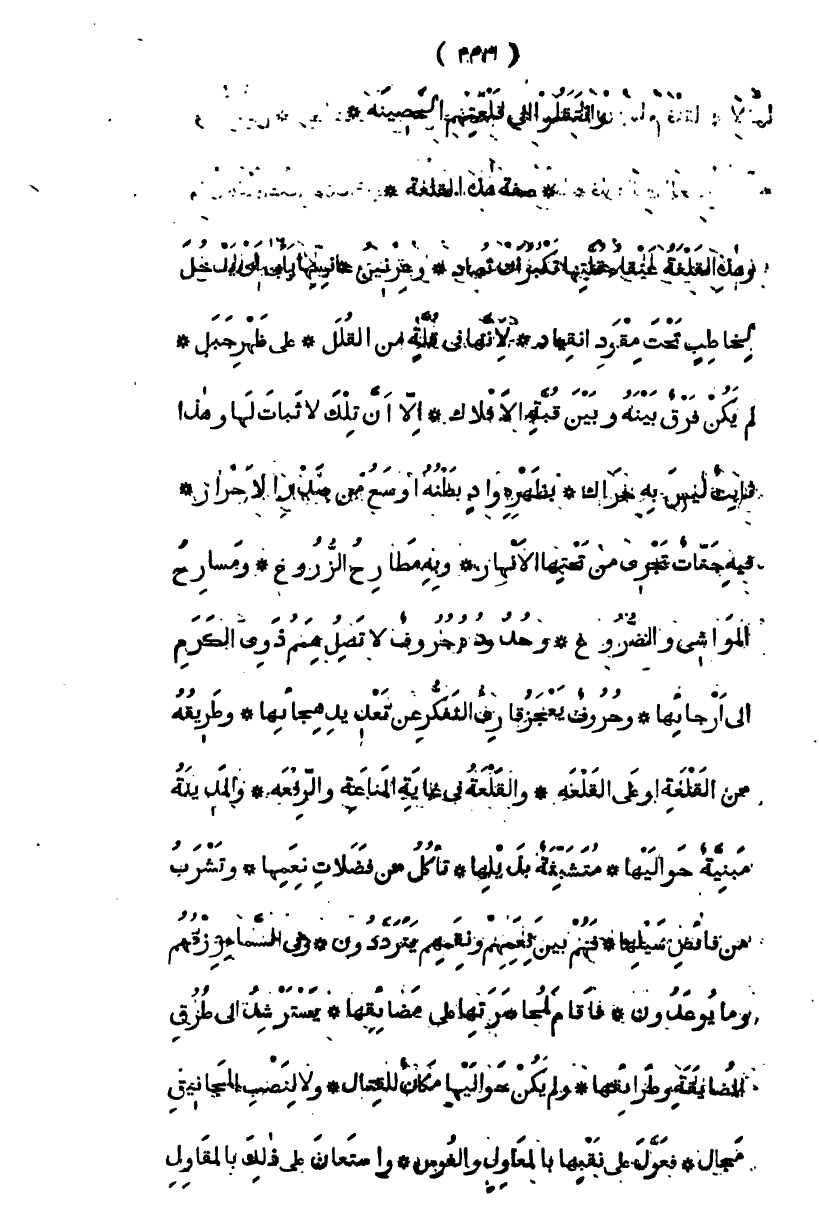 وانتقلوا الى قلعتهم الحصينه *
* صفة هذه القلعة *
وهذه القلعة عنقاء تكبر ان تصاد * وعرنين
لخاطب تحت مقود انقياد * لانها في قلة من القلل * على ظهر جبل *
لم يكن فرق بينه وبين قبة الافلاك * الا ان تلك لا ثبات لها وهذا
ثابت ليس به حراك * بظهره واد بطنه اوسع من الاحرار *
فيه جنات تجرى من تحتها الانهار * وبه مطارح الزروع * ومسارح
المواشى والضروع * وحدود وحروف لا تصل همم ذوى الكرم
الى أرجائها * وحروف يعجز قارئ التفكر عن تعديد هجائها * وطريقه
من القلعة او على القلعه * والقلعة فى غاية المناعة والرفعه * والمدينة
مبنية حواليها * متشبثة بذيلها * تأكل من فضلات نعمها * وتشرب
من فائض سيلها * فهم بين نعمهم ونقمهم يترددون * وفى السماء رزقهم
وما يوعدون * فأقام لمحاصرتها على مضائقها * يسترشد الى طرق
المضايقة وطرائقها * ولم يكن حواليها مكان للقتال * ولا لنصب المجانيق
مجال * فعول على نقبها بالمعاول والفوس * واستعان على ذلك بالمقاول